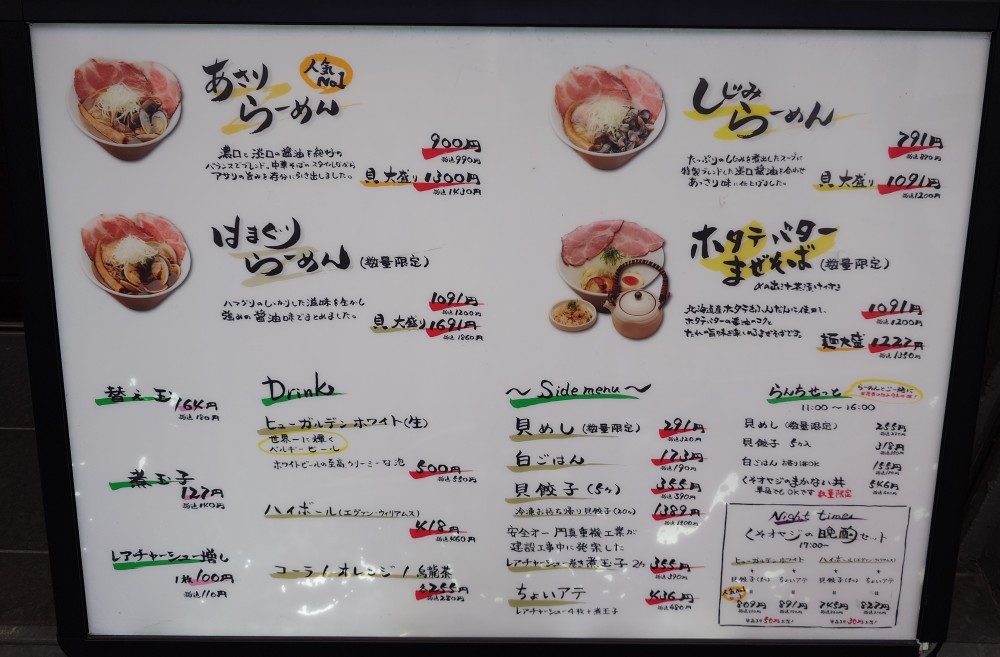 あさり
らーめん
人気
No1
濃口と淡口の醤油を絶妙の
バランスでブレンド、中華そばのスタイルながら
アサリの旨みを存分に引き出しました。
900円
税込990円
貝大盛り 1300円
税込1430円
しじみ
らーめん
たっぷりのしじみを煮出したスープに
特製ブレンドした淡口醤油を合わせ
あっさり味に仕上げました。
791円
税込870円
貝大盛り 1091円
税込1200円
はまぐり
らーめん (数量限定)
ハマグリのしっかりした滋味を生かし
強めの醤油味でまとめました。
1091円
税込1200円
貝大盛り 1691円
税込1860円
ホタテバター
まぜそば (数量限定)
〆の出汁茶漬け付き
北海道産ホタテをふんだんに使用し、
1091円
税込1200円
麺大盛 1227円
税込1350円
替え玉
164円
税込180円
煮玉子
127円
税込140円
レアチャーシュー増し
1枚100円
税込110円
Drink
ヒューガルデンホワイト(生)
世界一に輝く
ベルギービール
ホワイトビールの至高、クリーミーな泡
500円
税込550円
ハイボール(エヴァン・ウィリアムス)
418円
税込460円
コーラ/オレンジ/烏龍茶
各255円
税込280円
〜Side menu〜
貝めし (数量限定) 291円
税込320円
白ごはん 173円
税込190円
貝餃子(5ヶ) 355円
税込390円
冷凍お持ち帰り貝餃子(20ヶ) 1389円
税込1500円
安全オー 門真重機工業が
建設工事中に発案した
レアチャーシュー巻き煮玉子 2ヶ 355円
税込390円
ちょいアテ 436円
税込480円
レアチャーシュー4枚+煮玉子
らんちせっと
らーめんとご一緒に
11:00〜16:00
貝めし (数量限定) 255円
貝餃子 5ヶ入 318円
白ごはん お替り1杯OK 155円
くそオヤジのまかない丼 546円
単品でもOKです 数量限定
Night time
くそオヤジの晩酌セット
17:00〜
ヒューガルデンホワイト ハイボール(エヴァン・ウィリアムス)
+ + + +
貝餃子(5ヶ) ちょいアテ 貝餃子(5ヶ) ちょいアテ
809円 891円 745円 827円